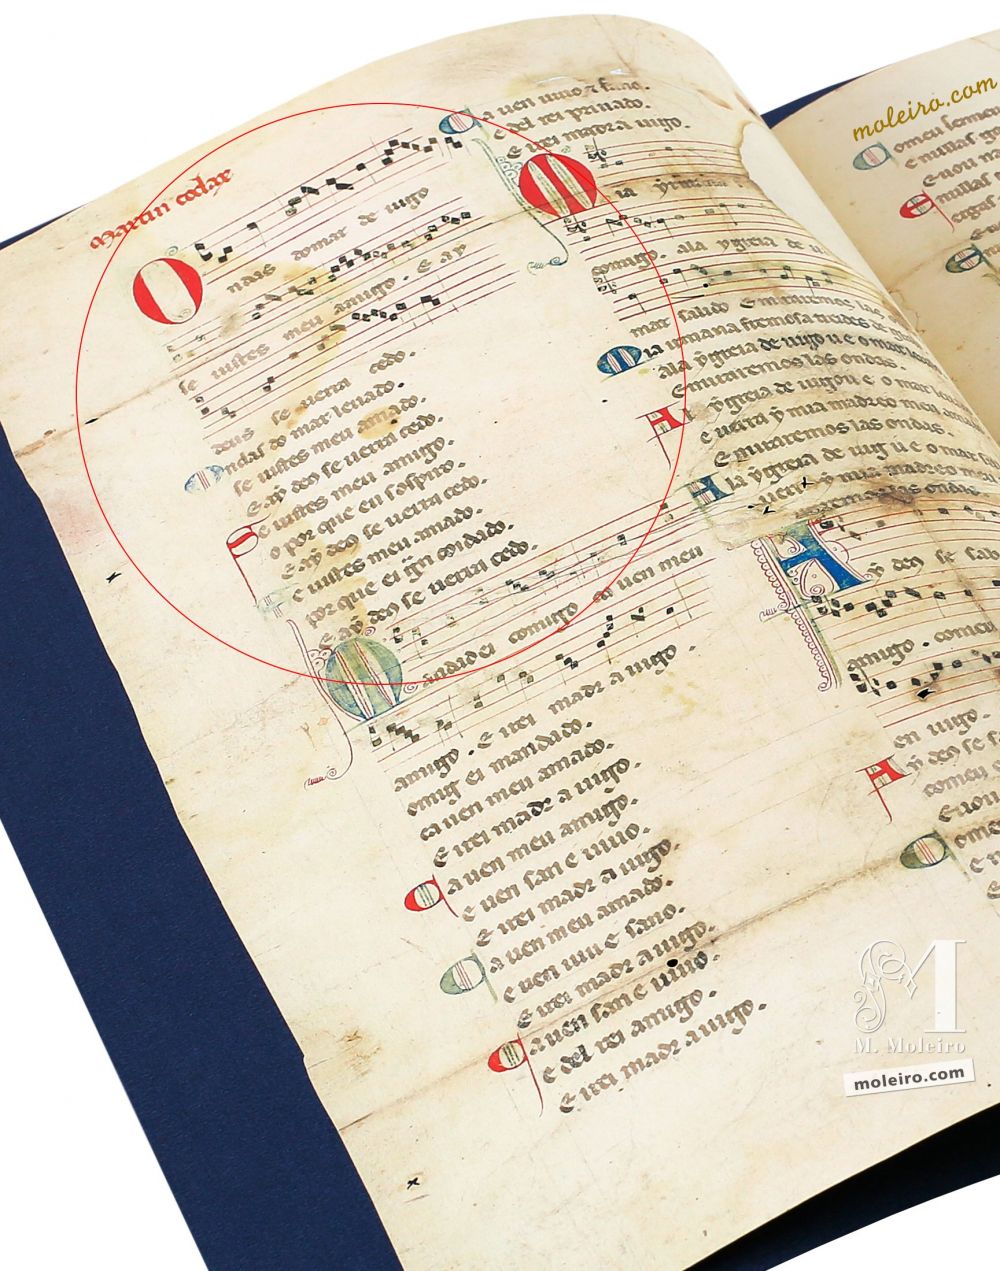 Martin codax
Ondas domar de uigo
se uistes meu amigo. E ay
deus se uerra cedo.
Ondas do mar leuado.
se uistes meu amado.
E ay deus se uerra cedo
Se uistes meu amigo.
o por que eu sospiro.
E ay deus se uerra cedo.
Se uistes meu amado.
por que ei gran coidado.
E ay deus se uerra cedo.
Mandadei comigo ca uen meu
amigo. E irei madr a uigo.
Comig ei mandado.
ca uen meu amado.
E irei madr a uigo.
Ca uen meu amigo.
e uen san e uiuo.
E irei madr a uigo.
Ca uen meu amado.
e uen uiu e sano.
E irei madr a uigo.
Ca uen san e uiuo.
e del rei amigo.
E irei madr a uigo.
Ca uen uiuo e sano.
e del rei priuado.
E irei madr a uigo.
Mia yrmana
comigo. ala ygreia de u
mar salido E miraremos
Mia irmana fremosa treides de
ala ygreia de uigo u e o mar leua
E miraremos las ondas.
A la ygreia de uigo u e o mar leua
e uerra y mia madre o meu ama
E miraremos las ondas.
A la ygreia de uigo u e o mar
uerra y mia madre o me
miraremos las ondas
Ay deus se sab
amigo. comeu
en uigo.
Ay deus se sa
comeu
E uou
Come
e n
omeu senneir
E nullas gar
E uou
E nullas
ergas
E
moleiro.com
M. Moleiro
moleiro.com